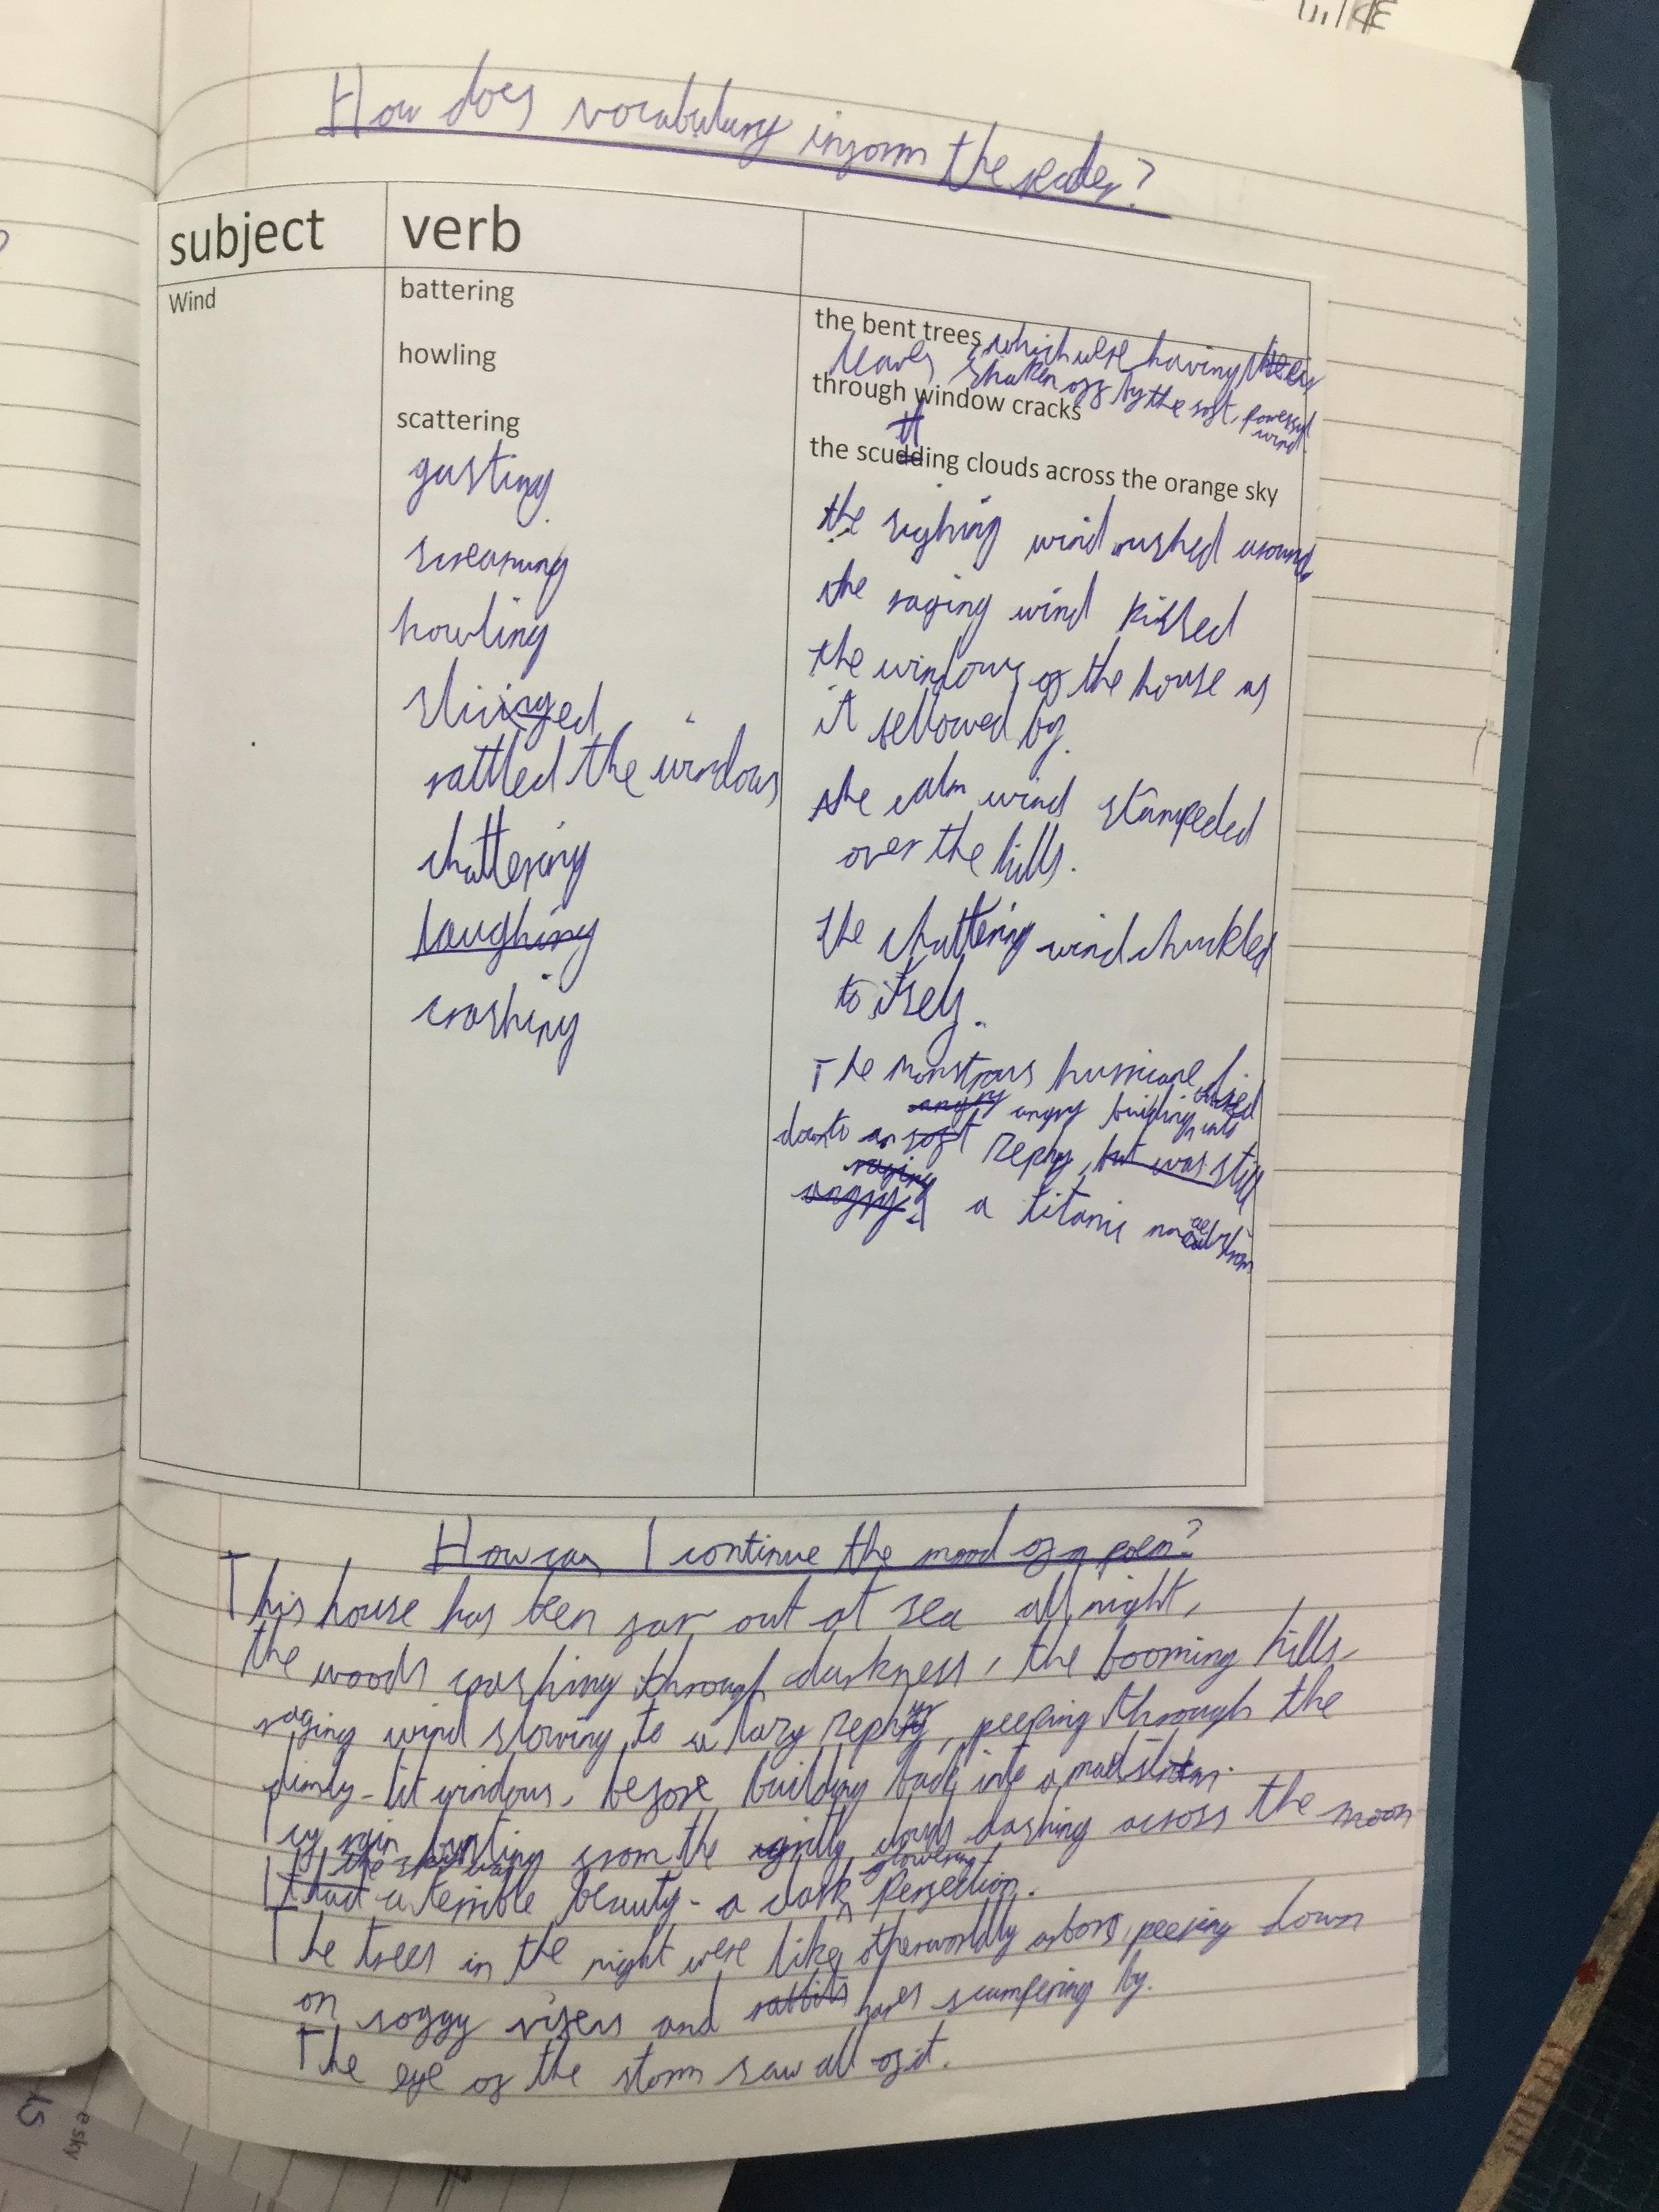 How does vocabulary inform the reader?
subject verb
Wind battering
the bent trees which were having their
leaves shaken off by the soft, powerful
wind.
howling
through window cracks
scattering
tt
the scudding clouds across the orange sky
gusting
screaming
howling
sliced
rattled the windows
chattering
laughing
crashing
the sighing wind rushed around
the raging wind kissed
the windows of the house as
it bellowed by.
the calm wind stampeded
over the hills.
the chattering wind chuckled
to itself.
The monstrous hurricane died
angry angry building into
down to a soft zephy, but was still
raging
angry. a titanic maelstrom
How can I continue the mood of a poem?
This house has been far out at sea all night,
the woods crashing through darkness, the booming hills,
raging wind slowing to a lazy zephyr, peeping through the
dimly-lit windows, before building back into a maelstrom.
Icy rain bursting from the clouds dashing across the moon
the sky was glowering
It had a terrible beauty - a dark perfection.
The trees in the night were like otherworldly arbors, peering down
on soggy vixens and rabbits hares scampering by.
The eye of the storm saw all of it.
e sky